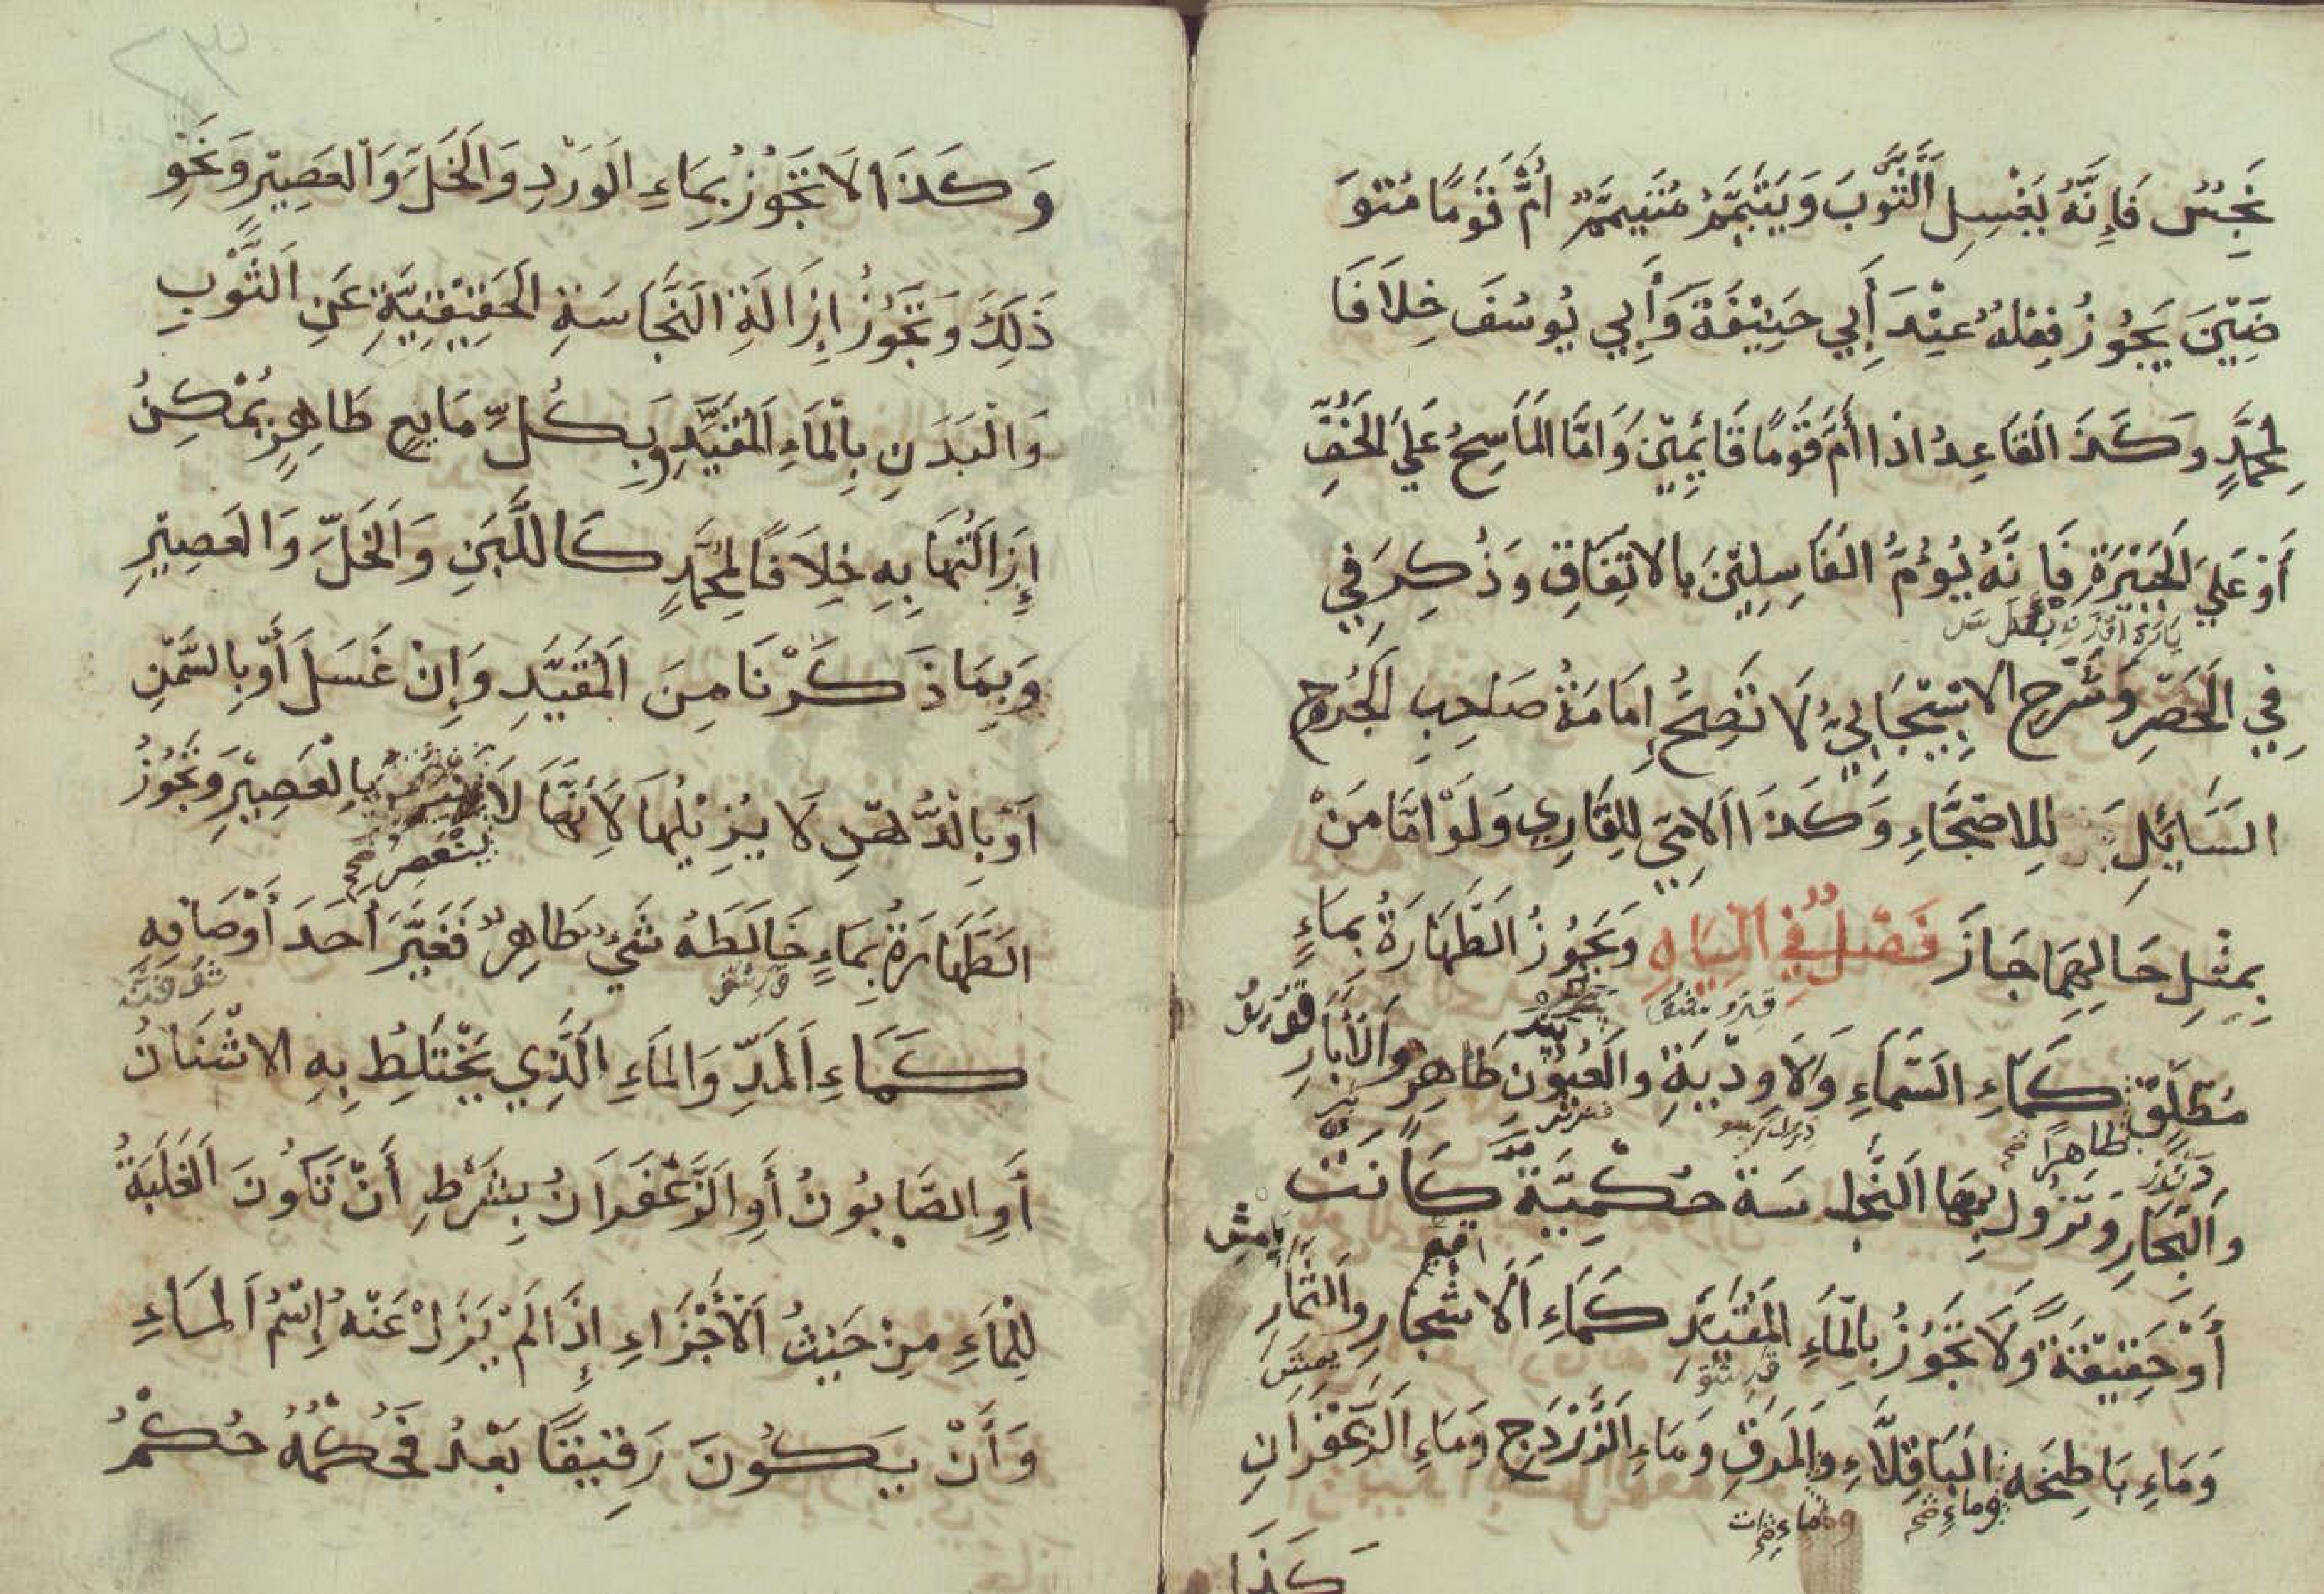 نَجِسٌ فَإِنَّهُ يَغْسِلِ الثَّوْبَ وَيَتَيَمَّمُ مُتَيَمِّمٌ اُمَّ قَوْمًا مُتَوَ
ضِيِّينَ يَجُوزُ فِعْلُهُ عِنْدَ أَبِي حَنِيفَةَ وَأَبِي يُوسُفَ خِلَافًا
لِمُحَمَّدٍ وَكَذَ القَاعِدُ اذَا أَمَّ قَوْمًا قَائِمِينَ وَامَّا المَاسِحُ عَلَى الخُفِّ
أَوْ عَلَى الجَبِيْرَةِ فَإِنَّهُ يُؤُمُّ الغَاسِلِيْنَ بالاتِّفَاقِ وَذُكِرَ فِي
فِي الحَصْرِ وَشَرْحِ الاسْبِيْجَابِيِّ لَا تَصِحُّ إِمَامَةُ صَاحِبِ الجُرْحِ
السَّائِلِ لِلاصِحَّاءِ وَكَذَا الامِّيّ لِلقَارِي وَلَوْ امَّا مَنْ
بِمِثْلِ حَالِهِمَا جَازَ فَصْلٌ فِي المِيَاهِ وَتَجُوزُ الطَّهَارَةُ بِمَاءٍ
مُطْلَقٍ كَمَاءِ السَّمَاءِ وَالاَوْدِيَةِ وَالعُيُوْنِ طَاهِرٍ وَالْأَبَارِ
طاهرًا صح
وَالبِحَارِ وَتَزُولُ بِهَا النَّجَاسَة حُكْمِيَّةً كَانَتْ
أَوْ حَقِيقَةً وَلَا تَجُوزُ بِالْمَاءِ المُقَيَّدِ كَمَاءِ الاَشْجَارِ وَالثِّمَارِ
وَمَاءِ بَاطِيْخَه البَاقِلَّاءِ وَالمَرَقِ وَمَاءِ الزَّرْدَجِ وَمَاءِ الزَّعْفَرَانِ
وماء صح
كَذَا
٢٣
وَكَذَا لَا تَجُوزُ بِمَاءِ الوَرْدِ وَالْخَلِّ وَالْعَصِيْرِ وَنَحْوِ
ذَلِكَ وَتَجُوْزُ إِزَالَةِ النَّجَاسَةِ الحَقِيْقِيَّةِ عَنِ الثَّوْبِ
وَالْبَدَنِ بِالْمَاءِ المُقَيَّدِ وَبِكُلِّ مَايِعٍ طَاهِرٍ يُمْكِنُ
إِزَالَتُهَا بِهِ خِلَافًا لِمُحَمَّدٍ كَاللَّبَنِ وَالخَلِّ وَالعَصِيْرِ
وَبِمَا ذَكَرْنَا مِنَ المُقَيَّدِ وَإِنْ غَسَلَ أَوْ بِالسَّمْنِ
اَوْ بِالدُّهْنِ لَا يُزِيْلُهَا لِأَنَّهَا لَا بِالْعَصِيْرِ وَتَجُوْزُ
يَنْعَصِرُ صح
الطَّهَارَةُ بِمَاءٍ خَالَطَهُ شَيْءٌ طَاهِرٌ فَغَيَّرَ أَحَدَ أَوْصَافِهِ
كَمَاءِ المَدِّ وَالمَاءِ الَّذِي يَخْتَلِطُ بِهِ الاشْنَانُ
أَوِ الصَّابُونُ أَوِ الزَّعْفَرَانُ بِشَرْطِ أَنْ تَكُونَ الغَلَبَةُ
لِلْمَاءِ مِنْ حَيْثُ الأَجْزَاءِ إِذَا لَمْ يَزَلْ عَنْهُ إِسْمُ المَاءِ
وَأَنْ يَكُونَ رَقِيقًا بَعْدُ فَحُكْمُهُ حُكْمُ